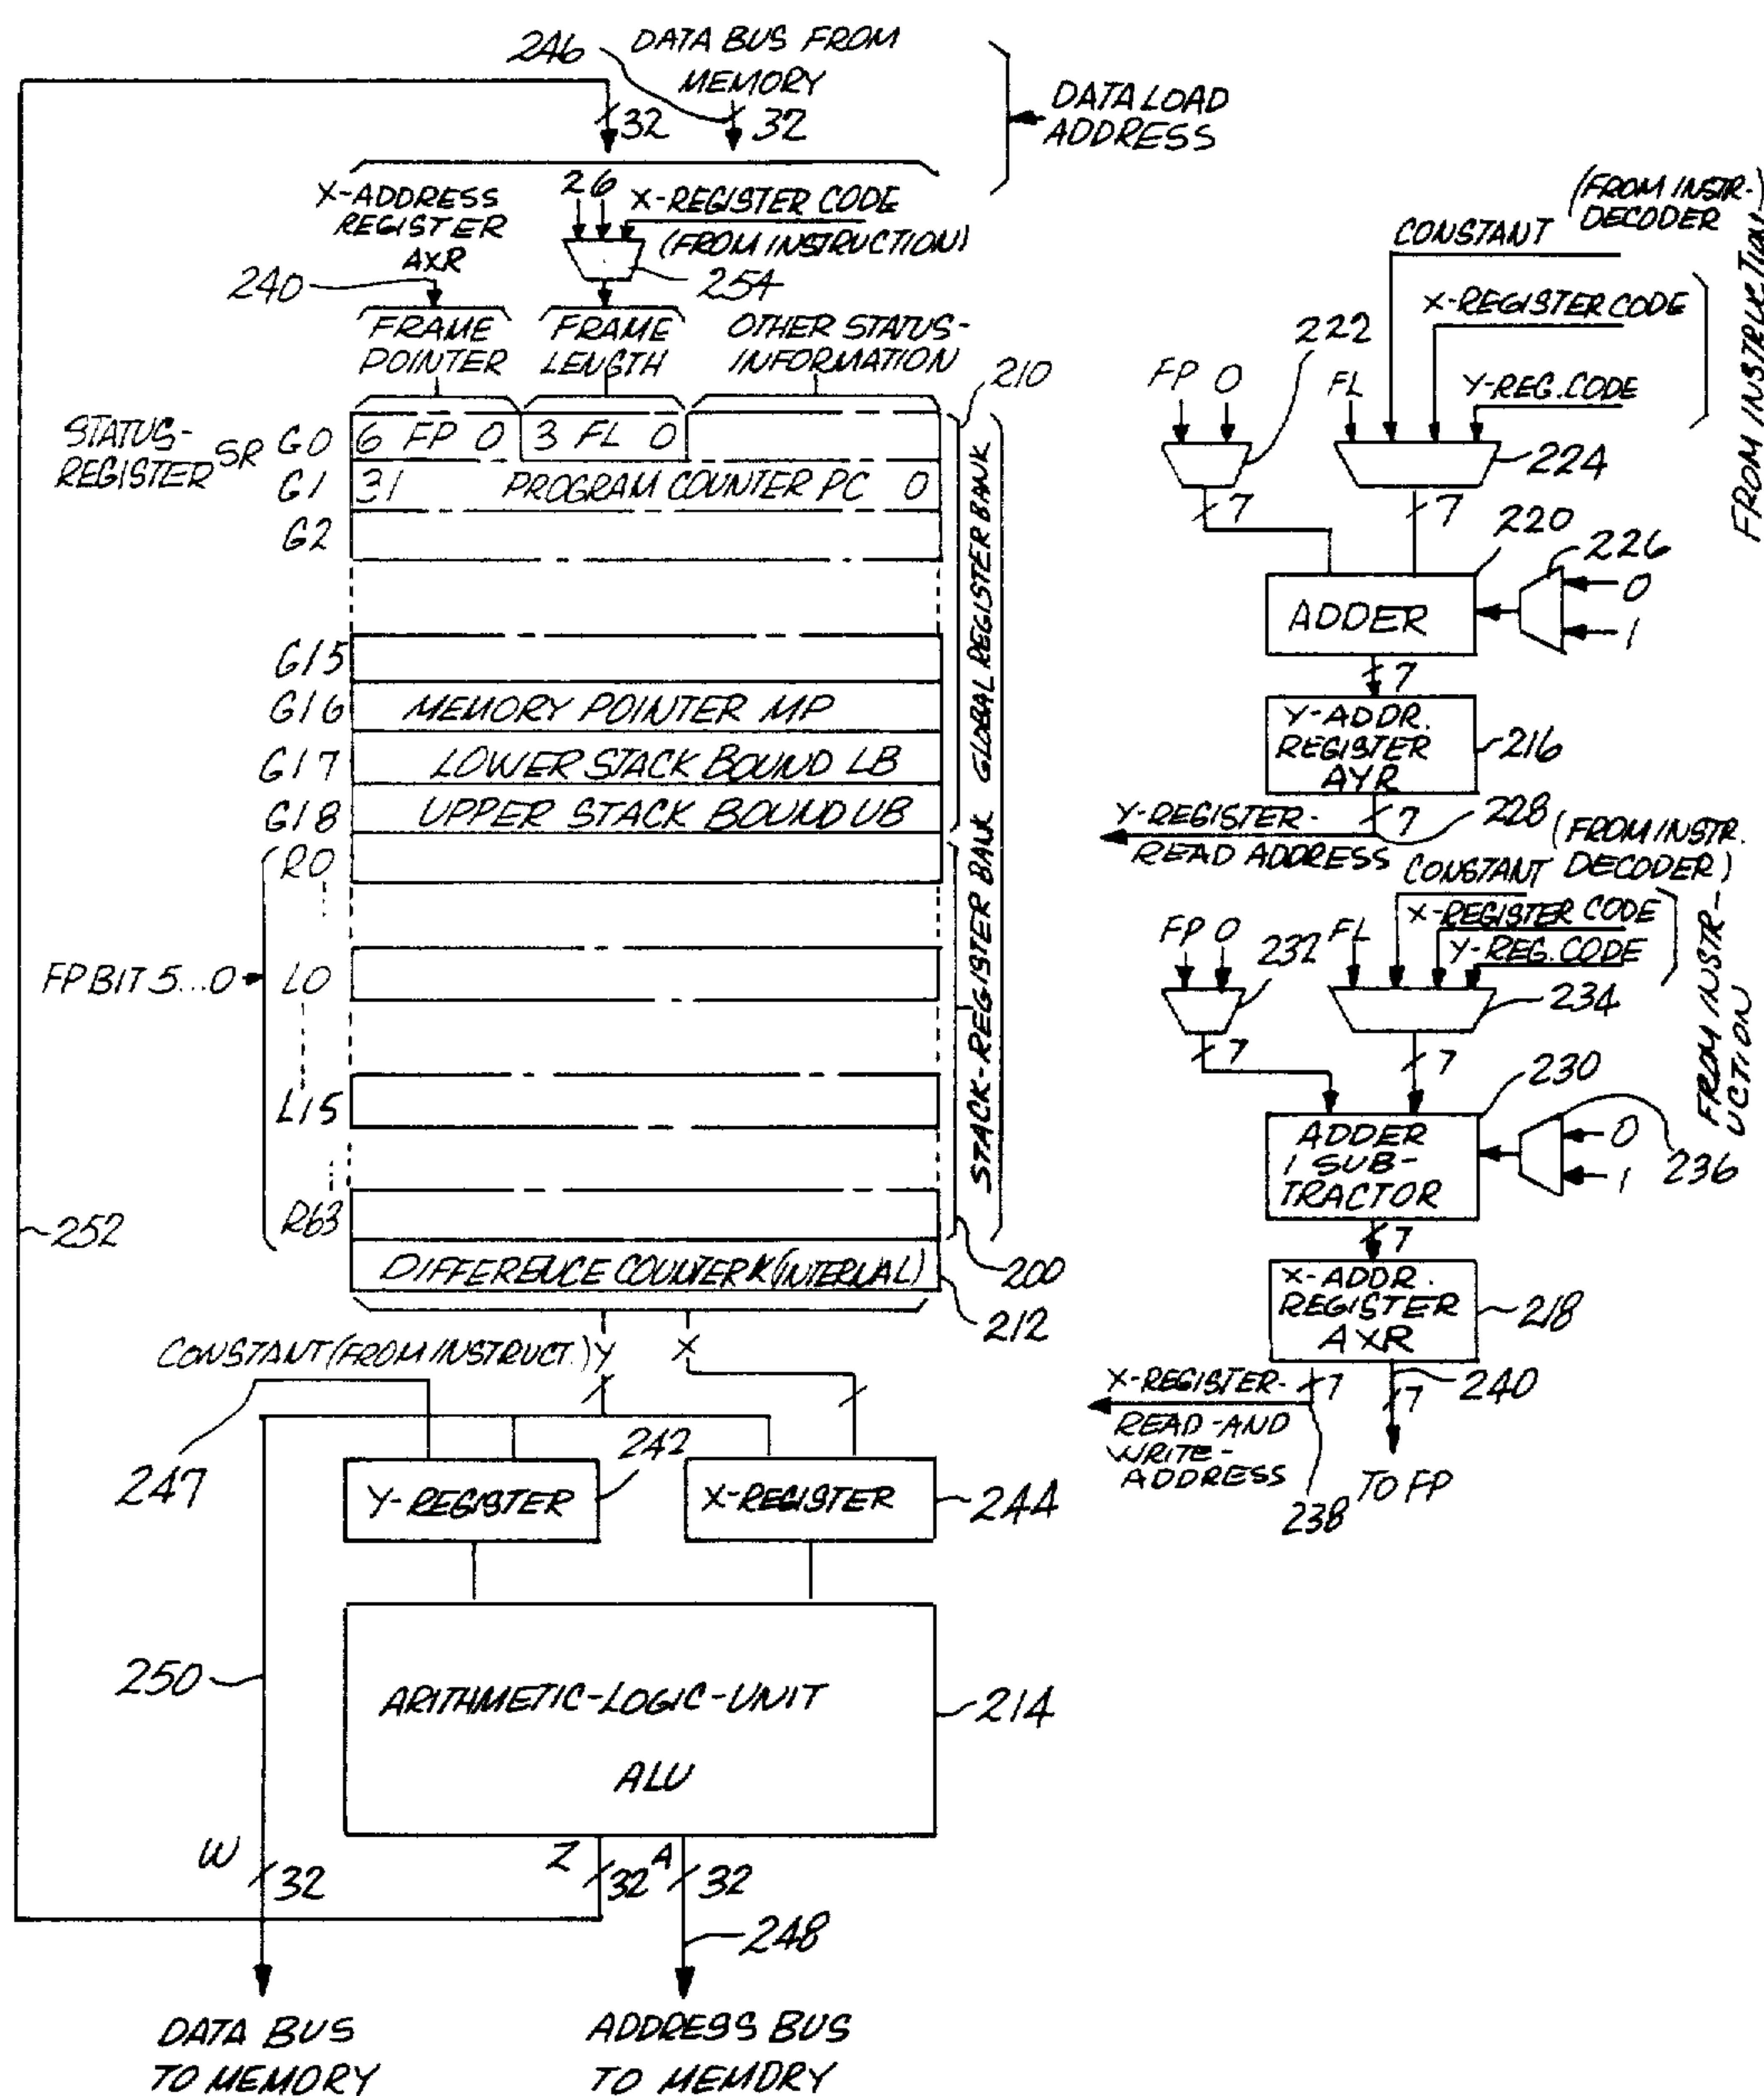 246
DATA BUS FROM
MEMORY
32
32
DATA LOAD
ADDRESS
X-ADDRESS
REGISTER
AXR
240
2 6
X-REGISTER CODE
(FROM INSTRUCTION)
254
FRAME
POINTER
FRAME
LENGTH
OTHER STATUS-
INFORMATION
210
STATUS-
REGISTER
SR
G0
6 FP 0
3 FL 0
G1
31 PROGRAM COUNTER PC 0
G2
G15
G16
MEMORY POINTER MP
G17
LOWER STACK BOUND LB
G18
UPPER STACK BOUND UB
GLOBAL REGISTER BANK
R0
FP BIT 5...0
L0
L15
R63
STACK-REGISTER BANK
252
DIFFERENCE COUNTER K (INTERNAL)
200
212
CONSTANT (FROM INSTRUCT.)
Y
X
247
242
Y-REGISTER
X-REGISTER
244
250
ARITHMETIC-LOGIC-UNIT
ALU
214
W
32
Z
32
A
32
248
DATA BUS
TO MEMORY
ADDRESS BUS
TO MEMORY
(FROM INSTR-)
DECODER
CONSTANT
X-REGISTER CODE
Y-REG. CODE
FROM INSTRUCTION-
222
FP 0
FL
224
7
7
220
226
ADDER
0
1
7
Y-ADDR.
REGISTER
AYR
216
Y-REGISTER-
READ ADDRESS
7
228
(FROM INSTR.
DECODER)
CONSTANT
X-REGISTER CODE
Y-REG. CODE
FROM INSTR-
UCTION
FP 0
232
FL
234
7
7
230
ADDER
/ SUB-
TRACTOR
0
1
236
7
X-ADDR.
REGISTER
AXR
218
X-REGISTER-
READ-AND
WRITE-
ADDRESS
7
7
240
238
TO FP